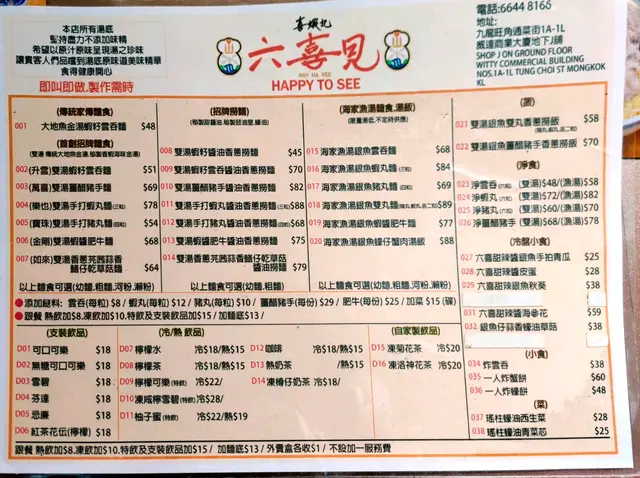 本店所有湯底
堅持盡力不添加味精
希望以原汁原味呈現湯之珍味
讓貴客人們品嚐到湯底原味道美味精華
食得健康開心
即叫即做.製作需時
喜蝦丸
六喜見
HAY HA KEE
HAPPY TO SEE
電話:6644 8165
地址:
九龍旺角通菜街1A-1L
威達商業大廈地下J舖
SHOP J ON GROUND FLOOR
WITTY COMMERCIAL BUILDING
NOS.1A-1L TUNG CHOI ST MONGKOK
KL
(傳統家傳麵食)
001 大地魚金湯蝦籽雲吞麵 $48
首創招牌麵食)
(雙湯 傳統大地魚金湯,秘製香蝦海味金湯)
002(升雲) 雙湯蝦籽雲吞麵 $51
003(萬喜) 雙湯薑醋豬手麵 $69
004(樂也) 雙湯手打蝦丸麵(三粒) $78
005(寶珠) 雙湯手打豬丸麵(四粒) $54
006(金剛) 雙湯蝦醬肥牛麵 $68
007(如來) 雙湯香蔥芫茜蒜香
鱔仔乾草菇麵 $64
以上麵食可選(幼麵,粗麵,河粉,瀨粉)
(招牌撈麵)
(秘製甜醬油,秘製豉油皇,蠔油)
008 雙湯蝦籽醬油香蔥撈麵 $45
009 雙湯蝦籽雲吞醬油香蔥撈麵 $70
010 雙湯薑醋豬手醬油香蔥撈麵 $82
011 雙湯手打蝦丸醬油香蔥撈麵(三粒) $88
012 雙湯手打豬丸醬油香蔥撈麵(四粒) $68
013 雙湯蝦醬肥牛醬油香蔥撈麵 $75
014 雙湯香蔥芫茜蒜香鱔仔乾草菇
醬油撈麵 $79
以上麵食可選(幼麵,粗麵)
(海家漁湯麵食,湯飯)
(限量湯底,不定時供應)
015 海家漁湯銀魚雲吞麵 $68
016 海家漁湯銀魚蝦丸麵(三粒) $84
017 海家漁湯銀魚豬丸麵(四粒) $69
018 海家漁湯銀魚雙丸麵(豬丸,蝦丸,各二粒) $89
019 海家漁湯銀魚蝦醬肥牛麵 $77
020 海家漁湯銀魚蠔仔蟹肉湯飯 $88
以上麵食可選(幼麵,粗麵,河粉,瀨粉)
●添加餸料: 雲吞(每粒) $8 / 蝦丸(每粒) $12 / 豬丸(每粒) $10 / 薑醋豬手(每份) $29 / 肥牛(每份) $25 / 加菜 $15 (碟)
●跟餐 熱飲加$8.凍飲加$10.特飲及支裝飲品加$15/ 加麵底$13/
(飯)
021 雙湯銀魚雙丸香蔥撈飯 $58
(豬丸,蝦丸,各二粒)
022 雙湯銀魚薑醋豬手香蔥撈飯 $70
(淨食)
023 淨雲吞(六粒) (雙湯)$48/(漁湯)$58
024 淨蝦丸(六粒) (雙湯)$72/(漁湯)$82
025 淨豬丸(六粒) (雙湯)$60/(漁湯)$70
026 淨薑醋豬手 (雙湯)$68/(漁湯)$78
(冷盤小食)
027 六喜甜辣醬銀魚手拍青瓜 $25
028 六喜甜辣醬皮蛋 $28
029 六喜甜辣銀魚秋葵 $38
031 六喜甜辣醬海參花 $59
032 銀魚仔蒜香蠔油草菇 $38
(小食)
034 炸雲吞 $38
035 一人炸蟹餅 $60
036 一人炸蠔餅 $48
(菜)
037 瑤柱蠔油西生菜 $28
038 瑤柱蠔油青菜芯 $25
(支裝飲品)
D01 可口可樂 $18
D02 無糖可口可樂 $18
D03 雪碧 $18
D04 芬達 $18
D05 忌廉 $18
D06 紅茶花伝(檸檬) $18
(冷/熱 飲品)
D07 檸檬水 冷$18/熱$15
D08 檸檬茶 冷$18/熱$15
D09 檸檬可樂(特飲) 冷$22/
D10 凍咸檸雪碧(特飲) 冷$28/
D11 柚子蜜(特飲) 冷$22/熱$19
D12 咖啡 冷$18/熱$15
D13 熱奶茶 /熱$15
D14 凍樽仔奶茶 冷$18/
(自家製飲品)
D15 凍菊花茶 冷$20
D16 凍洛神花茶 冷$20
跟餐 熱飲加$8.凍飲加$10.特飲及支裝飲品加$15 / 加麵底$13 / 外賣盒各收$1 / 不設加一服務費